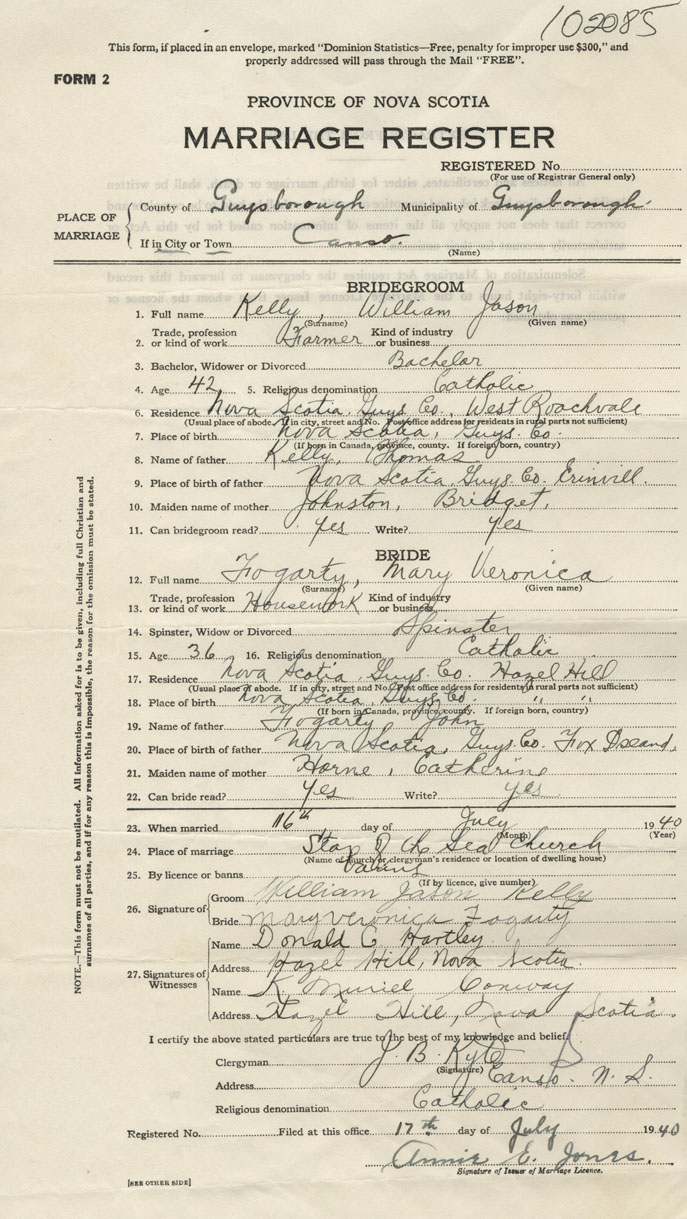 102085
This form, if placed in an envelope, marked "Dominion Statistics—Free, penalty for improper use $300," and
properly addressed will pass through the Mail "FREE".
FORM 2
PROVINCE OF NOVA SCOTIA
MARRIAGE REGISTER
REGISTERED No.
(For use of Registrar General only)
PLACE OF MARRIAGE
County of Guysborough Municipality of Guysborough
If in City or Town Canso.
(Name)
BRIDEGROOM
1. Full name Kelly, William Jason
(Surname) (Given name)
2. Trade, profession or kind of work Farmer Kind of industry or business
3. Bachelor, Widower or Divorced Bachelor
4. Age 42 5. Religious denomination Catholic
6. Residence Nova Scotia, Guys Co., West Roachvale
(Usual place of abode. If in city, street and No. Post office address for residents in rural parts not sufficient)
7. Place of birth Nova Scotia, Guys. Co.
(If born in Canada, province, county. If foreign born, country)
8. Name of father Kelly, Thomas
9. Place of birth of father Nova Scotia, Guys. Co. Erinvill.
10. Maiden name of mother Johnston, Bridget,
11. Can bridegroom read? Yes Write? Yes
BRIDE
12. Full name Fogarty, Mary Veronica
(Surname) (Given name)
13. Trade, profession or kind of work Housework Kind of industry or business
14. Spinster, Widow or Divorced Spinster
15. Age 36 16. Religious denomination Catholic
17. Residence Nova Scotia, Guys Co. Hazel Hill
(Usual place of abode. If in city, street and No. Post office address for residents in rural parts not sufficient)
18. Place of birth Nova Scotia, Guys. Co. " "
(If born in Canada, province, county. If foreign born, country)
19. Name of father Fogarty John
20. Place of birth of father Nova Scotia, Guys. Co. Fox Island,
21. Maiden name of mother Horne, Catherine
22. Can bride read? Yes Write? yes
23. When married 16th day of July 1940
(Month)
24. Place of marriage Star of the Sea Church
(Name of church or clergyman's residence or location of dwelling house)
25. By licence or banns Banns
(If by licence, give number)
26. Signature of
Groom William Jason Kelly
Bride Mary Veronica Fogarty
27. Signatures of Witnesses
Name Donald C Hartley.
Address Hazel Hill, Nova Scotia.
Name K Muriel Conway
Address Hazel Hill, Nova Scotia.
I certify the above stated particulars are true to the best of my knowledge and belief.
Clergyman J. B. Kyte
(Signature)
Address Canso. N. S.
Religious denomination Catholic
Registered No. Filed at this office 17th day of July 1940
Annie E. Jones.
Signature of Issuer of Marriage Licence.
[SEE OTHER SIDE]
NOTE.—This form must not be mutilated. All information asked for is to be given, including full Christian and
surnames of all parties, and if for any reason this is impossible, the reason for the omission must be stated.